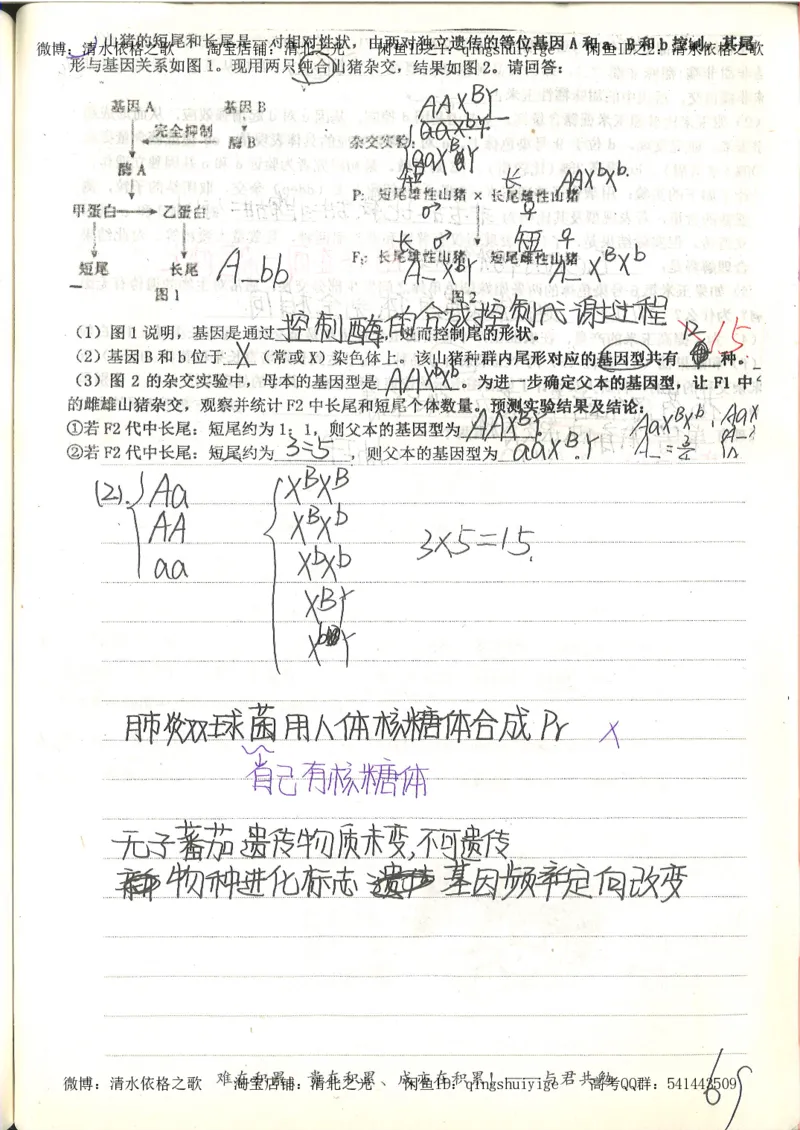 山猪的短尾和长尾是一对相对性状，由两对独立遗传的等位基因A和a、B和b控制，其尾
微博：清水依格之歌 淘宝店铺：清北之光 闲鱼ID之1：qingshuiyige 闲鱼ID之2：清水依格之歌
形与基因关系如图1。现用两只纯合山猪杂交，结果如图2。请回答：
基因A 基因B
完全抑制
酶B
酶A
甲蛋白 乙蛋白
短尾 长尾
A_bb
图1
AAXBY
杂交实验：
aaXbY
aaXBY
短 长 AAXbXb.
P：短尾雄性山猪 × 长尾雌性山猪
♂ ♀
长 ♂ 短 ♀
F₁：长尾雄性山猪 短尾雌性山猪
A_XbY A_XBXb
图2
控制酶的合成控制代谢过程
（1）图1说明，基因是通过 ，进而控制尾的形状。
（2）基因B和b位于 X （常或X）染色体上。该山猪种群内尾形对应的基因型共有 种。
15
（3）图2的杂交实验中，母本的基因型是 AAXbXb 。为进一步确定父本的基因型，让F1中
的雌雄山猪杂交，观察并统计F2中长尾和短尾个体数量。预测实验结果及结论：
①若F2代中长尾：短尾约为1：1，则父本的基因型为 AAXBY
②若F2代中长尾：短尾约为 3=5 ，则父本的基因型为 aaXBY
AaXBXb
(2). Aa XBXB
AA XBXb
aa XbXb
XBY
XbY
3×5=15.
肺炎双球菌用人体核糖体合成Pr ×
自己有核糖体
无子蕃茄遗传物质未变,不可遗传
物种进化标志 基因频率定向改变
难在积累、贵在积累、成亦在积累！——与君共勉
微博：清水依格之歌 淘宝店铺：清北之光 闲鱼ID：qingshuiyige 高考QQ群：541442509